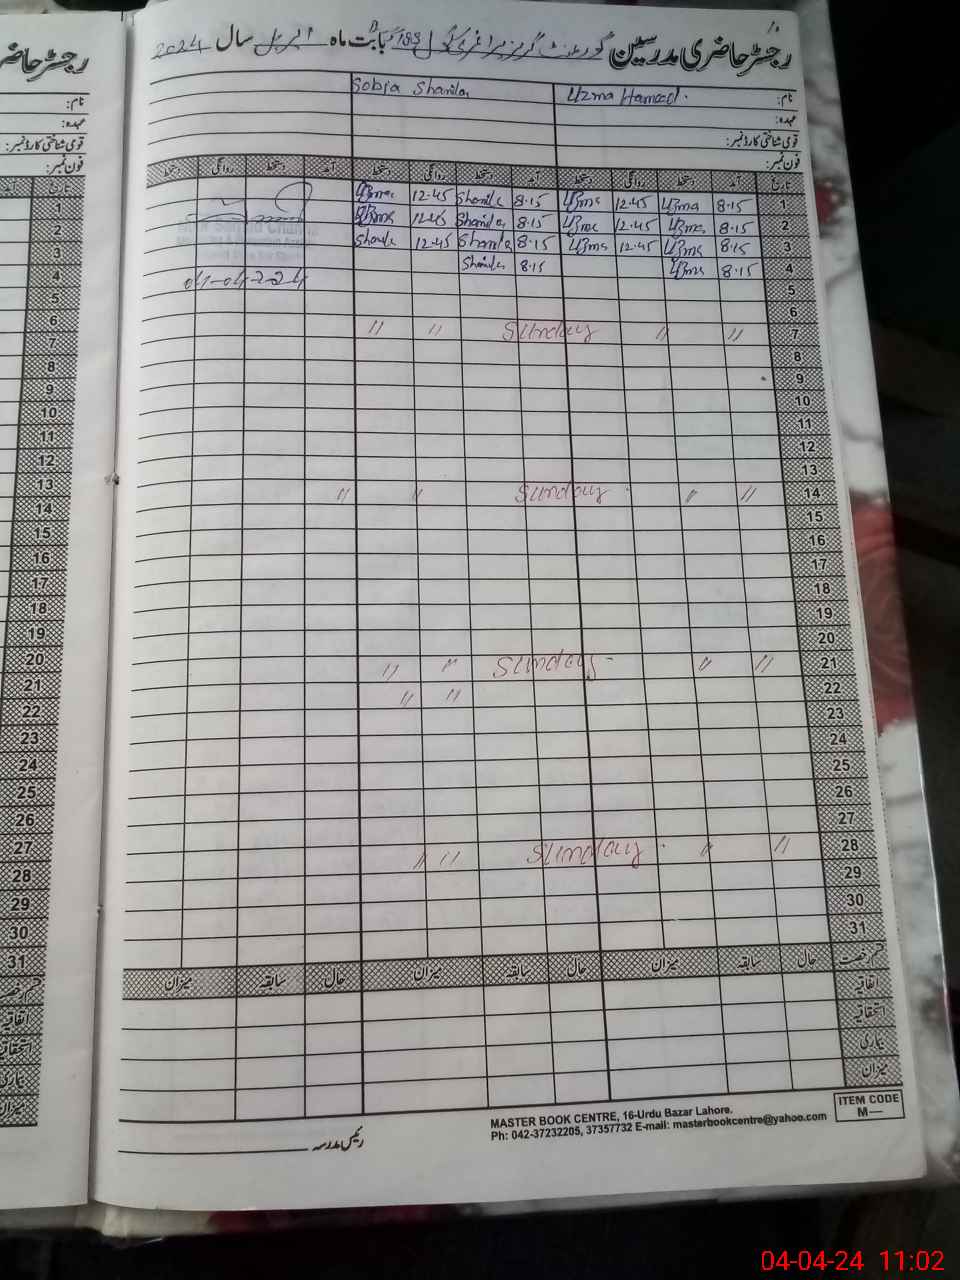 رجسٹر حاضری مدرسین گورنمنٹ گرلز پرائمری سکول بابت ماہ اپریل سال 2024
نام: Uzma Hameed. Sobia Shamila
عہدہ:
قومی شناختی کارڈ نمبر:
فون نمبر:
تاریخ آمد دستخط روانگی دستخط آمد دستخط روانگی دستخط آمد دستخط روانگی دستخط
1 8.15 Uzma 12.45 Uzma 8.15 Shamila 12.45
2 8.15 Uzma 12.45 Uzma 8.15 Shamila 12.45
3 8.15 Uzma 12.45 Uzma 8.15 Shamila 12.45
4 8.15 Uzma 8.15 Shamila
04-04-2024
5
6
7 " " Sunday " "
8
9
10
11
12
13
14 " " Sunday " "
15
16
17
18
19
20
21 " " Sunday " "
22 " "
23
24
25
26
27
28 " " Sunday " "
29
30
31
قسم رخصت حال سابقہ میزان حال سابقہ میزان حال سابقہ میزان
اتفاقیہ
استحقاقیہ
بیماری
میزان
رئیس مدرسہ
MASTER BOOK CENTRE, 16-Urdu Bazar Lahore.
Ph: 042-37232205, 37357732 E-mail: masterbookcentre@yahoo.com
ITEM CODE
M—
رجسٹر حاضر
نام:
عہدہ:
قومی شناختی کارڈ نمبر:
فون نمبر:
تاریخ
1
2
3
4
5
6
7
8
9
10
11
12
13
14
15
16
17
18
19
20
21
22
23
24
25
26
27
28
29
30
31
قسم رخصت
اتفاقیہ
بیماری
میزان
04-04-24 11:02